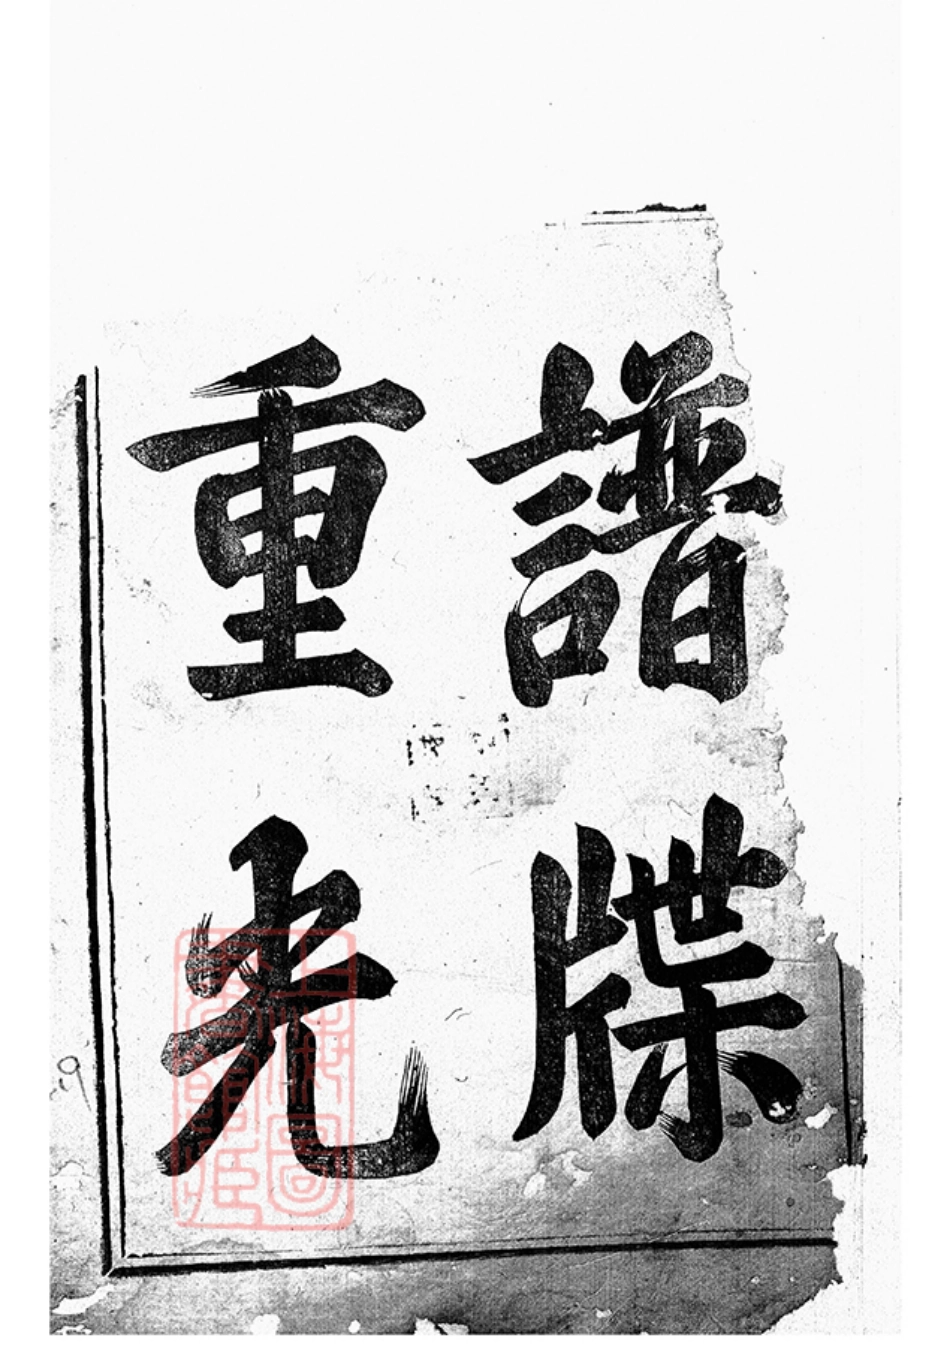 譜牒
重光